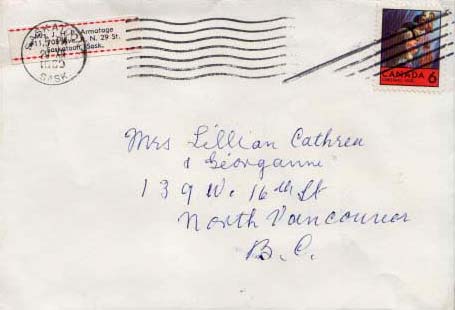 Mrs. J. H. Armatage
#11, 705 Ave. N. 29 St.
Saskatoon, Sask.
SASK.
CANADA 6
Mrs Lillian Cathrea
& Georganne
139 W. 16th St
North Vancouver
B.C.